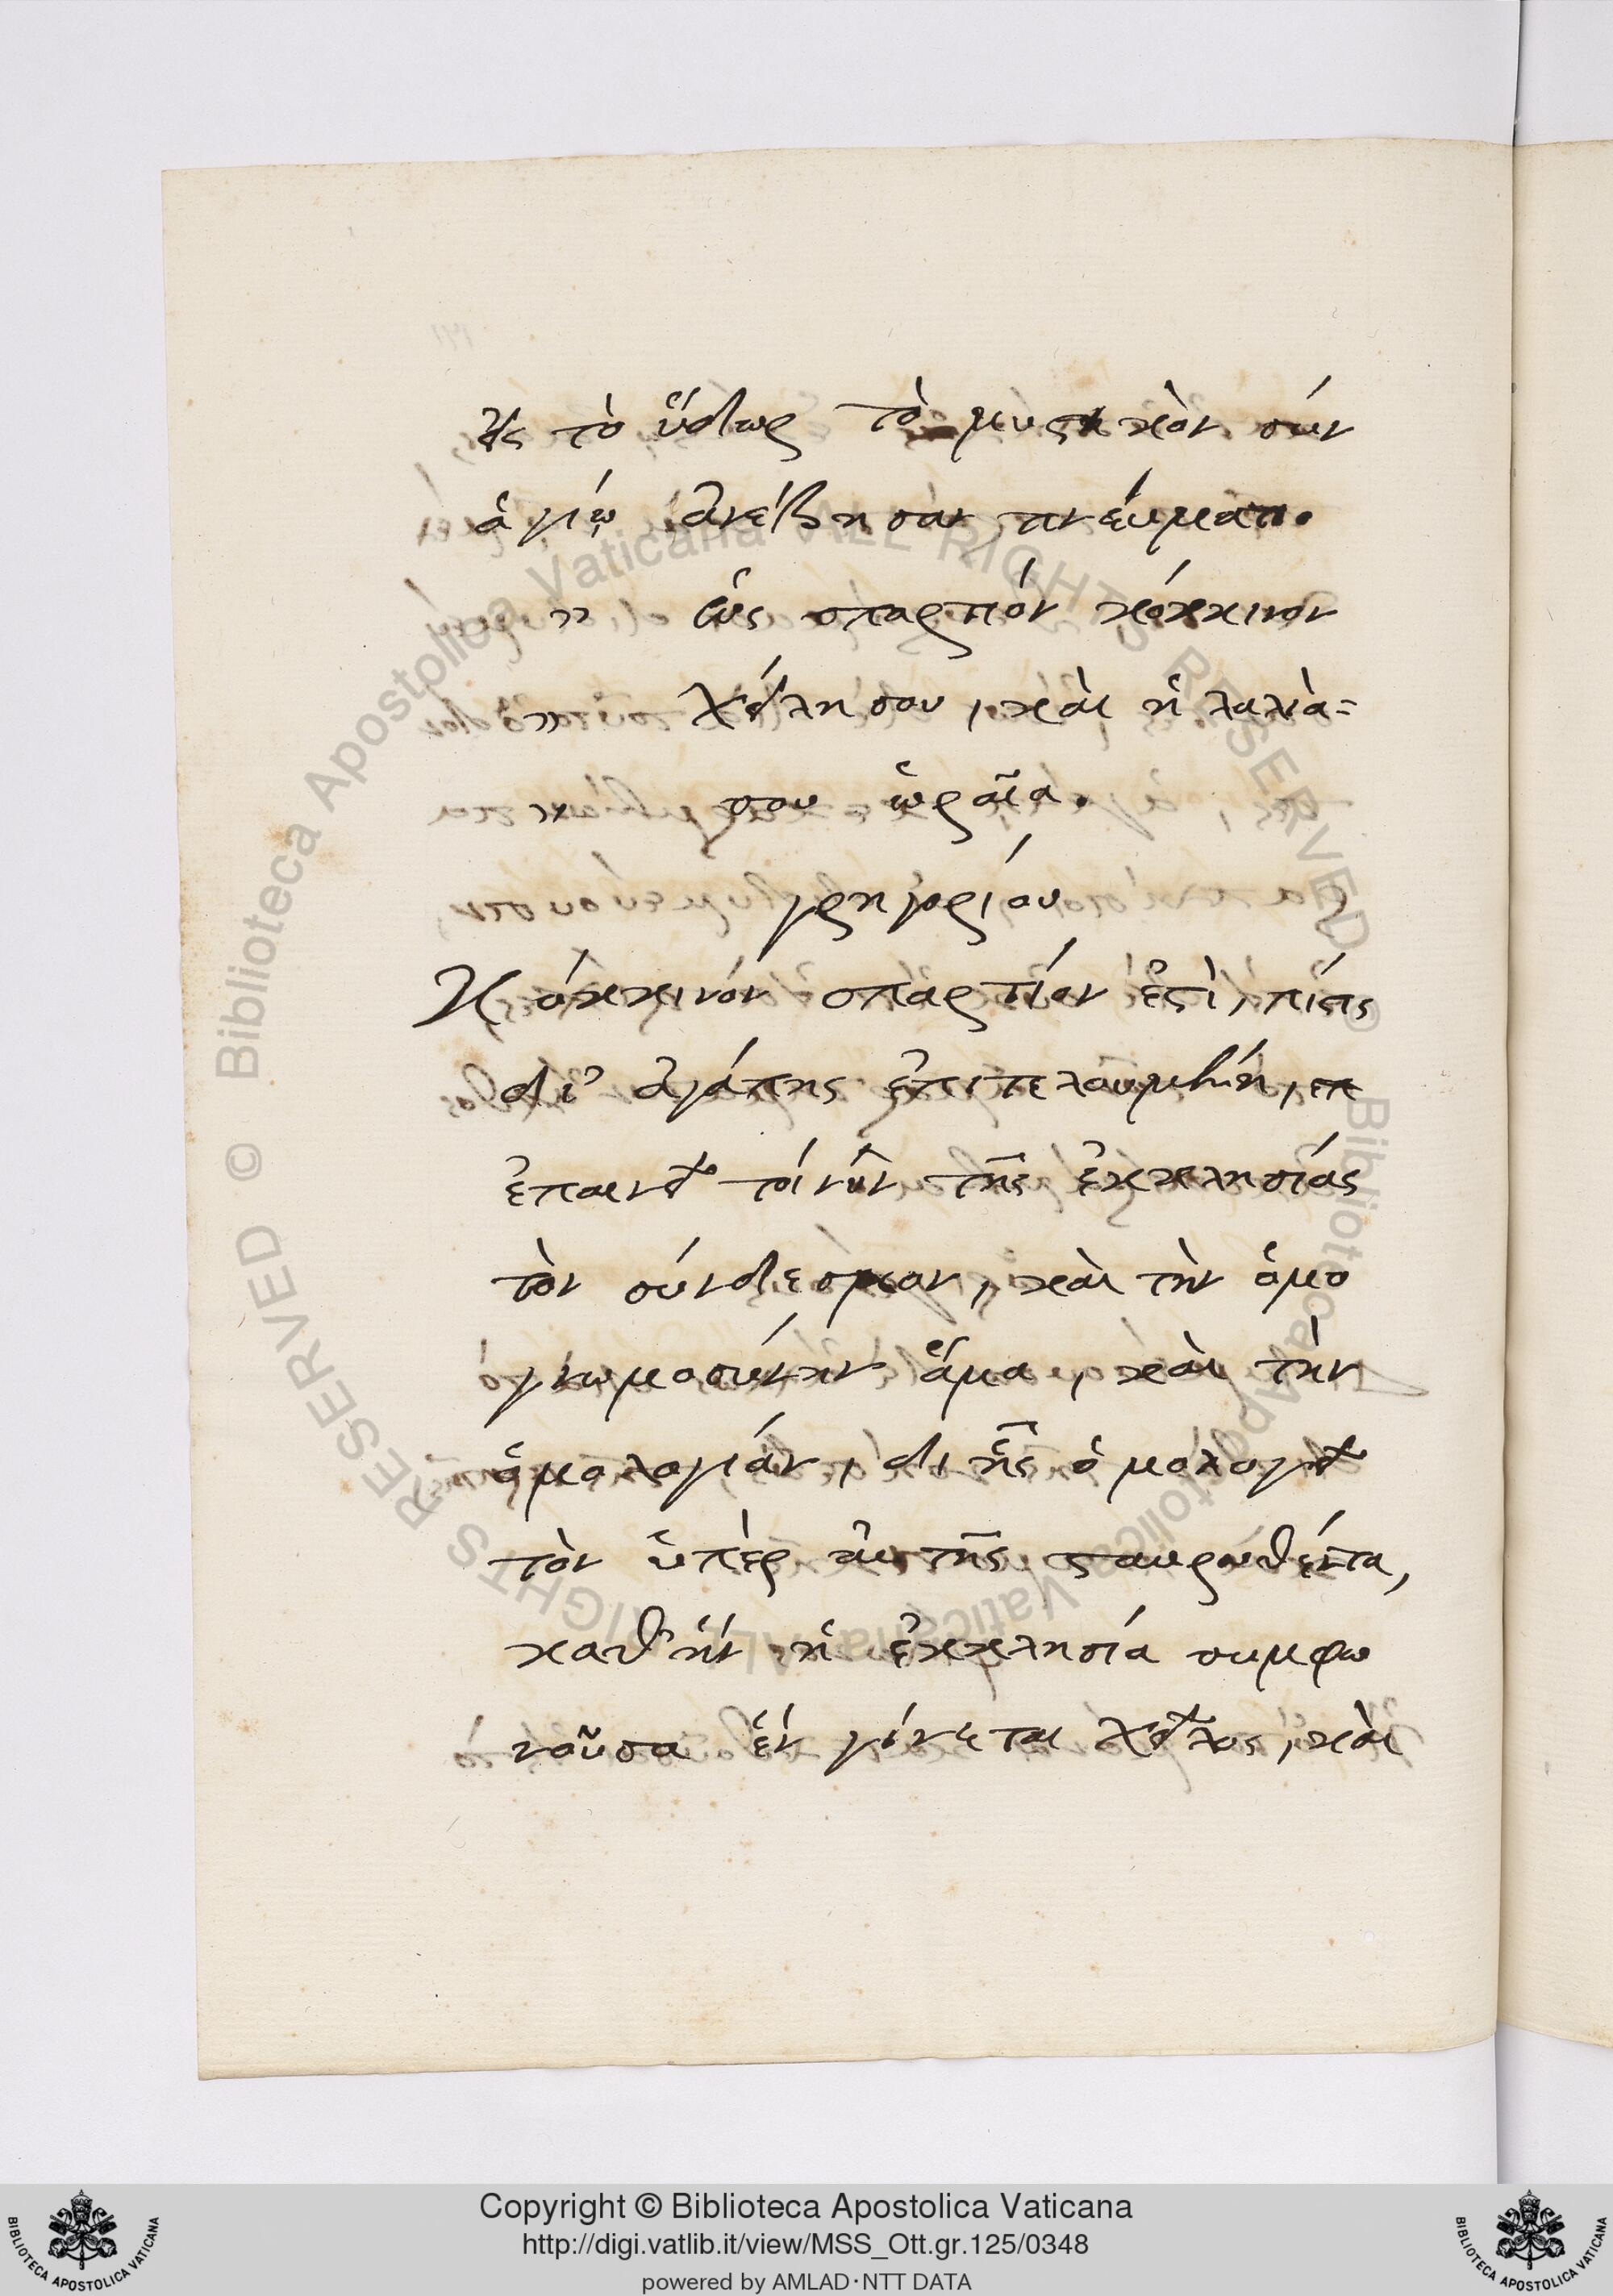 εἰς τὸ ὕδωρ τὸ μυστικὸν σὺν
ἁγίῳ ἀνέβησαν πνεύματι.
" ὡς σπαρτίον κόκκινον
" χείλη σου, καὶ ἡ λαλιὰ=
" σου ὡραῖα.
γρηγορίου
Κόκκινόν σπαρτίον ἐστὶ, πίστις
δι' ἀγάπης ἐπιτελουμένη,
ἐπαινεῖ τοίνυν τῆς ἐκκλησίας
τὸν σύνδεσμον, καὶ τὴν ὁμο
γνωμοσύνην ἅμα, καὶ τὴν
ὁμολογίαν, δι ἧς ὁμολογεῖ
τὸν ὑπὲρ αὐτῆς σταυρωθέντα,
καθ' ἣν ἡ ἐκκλησία συμφω
νοῦσα ἓν γίνεται χεῖλος, καὶ
Copyright © Biblioteca Apostolica Vaticana
http://digi.vatlib.it/view/MSS_Ott.gr.125/0348
powered by AMLAD·NTT DATA
BIBLIOTECA APOSTOLICA VATICANA
BIBLIOTECA APOSTOLICA VATICANA
© Biblioteca Apostolica Vaticana ALL RIGHTS RESERVED
© Biblioteca Apostolica Vaticana ALL RIGHTS RESERVED